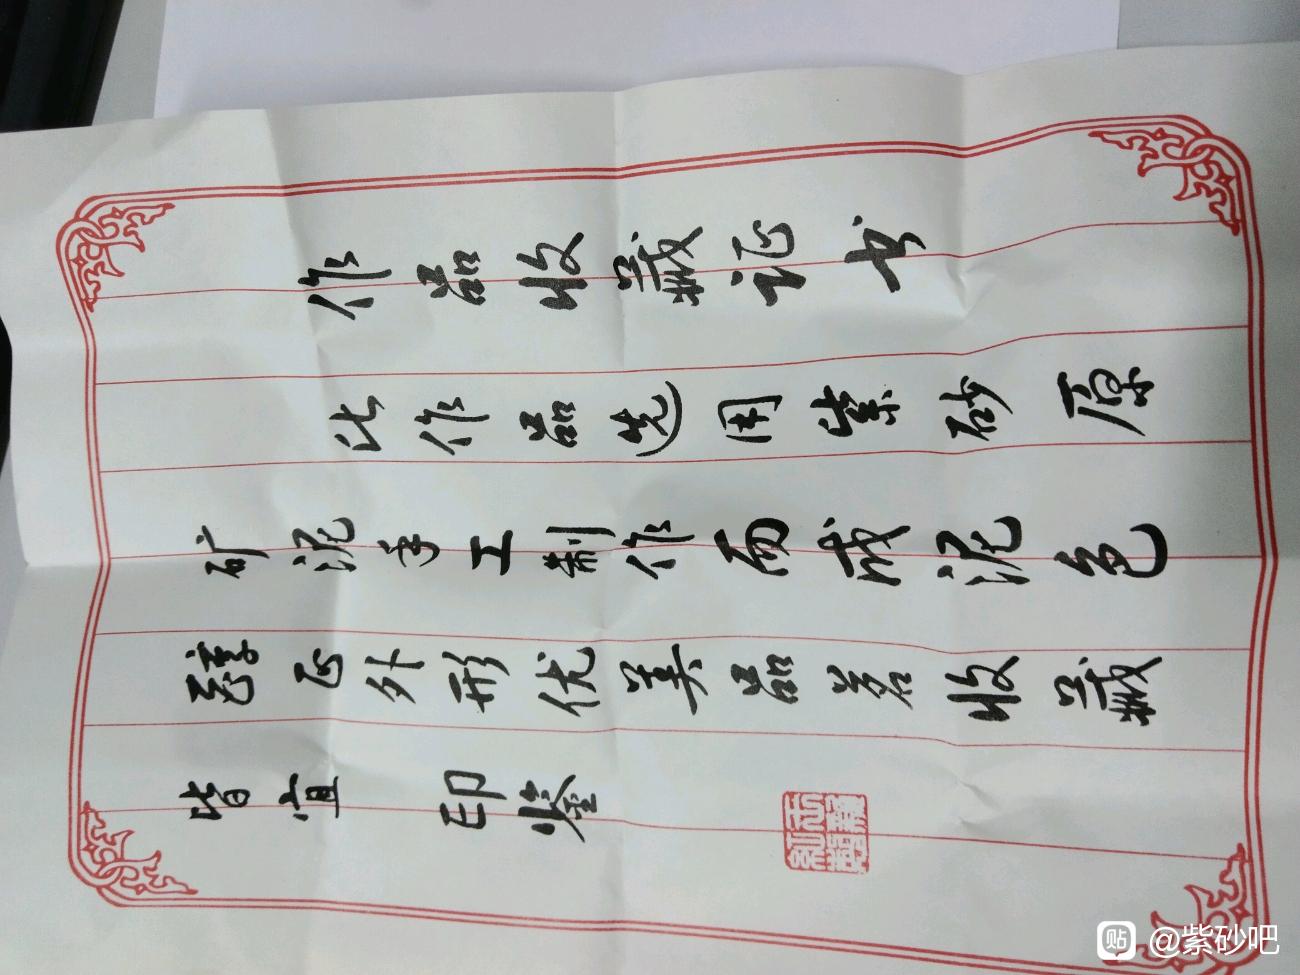 作品收藏证书
此作品选用紫砂原
矿泥手工制作而成泥色
醇正外形优美品茗收藏
皆宜 印鉴
贴 @紫砂吧